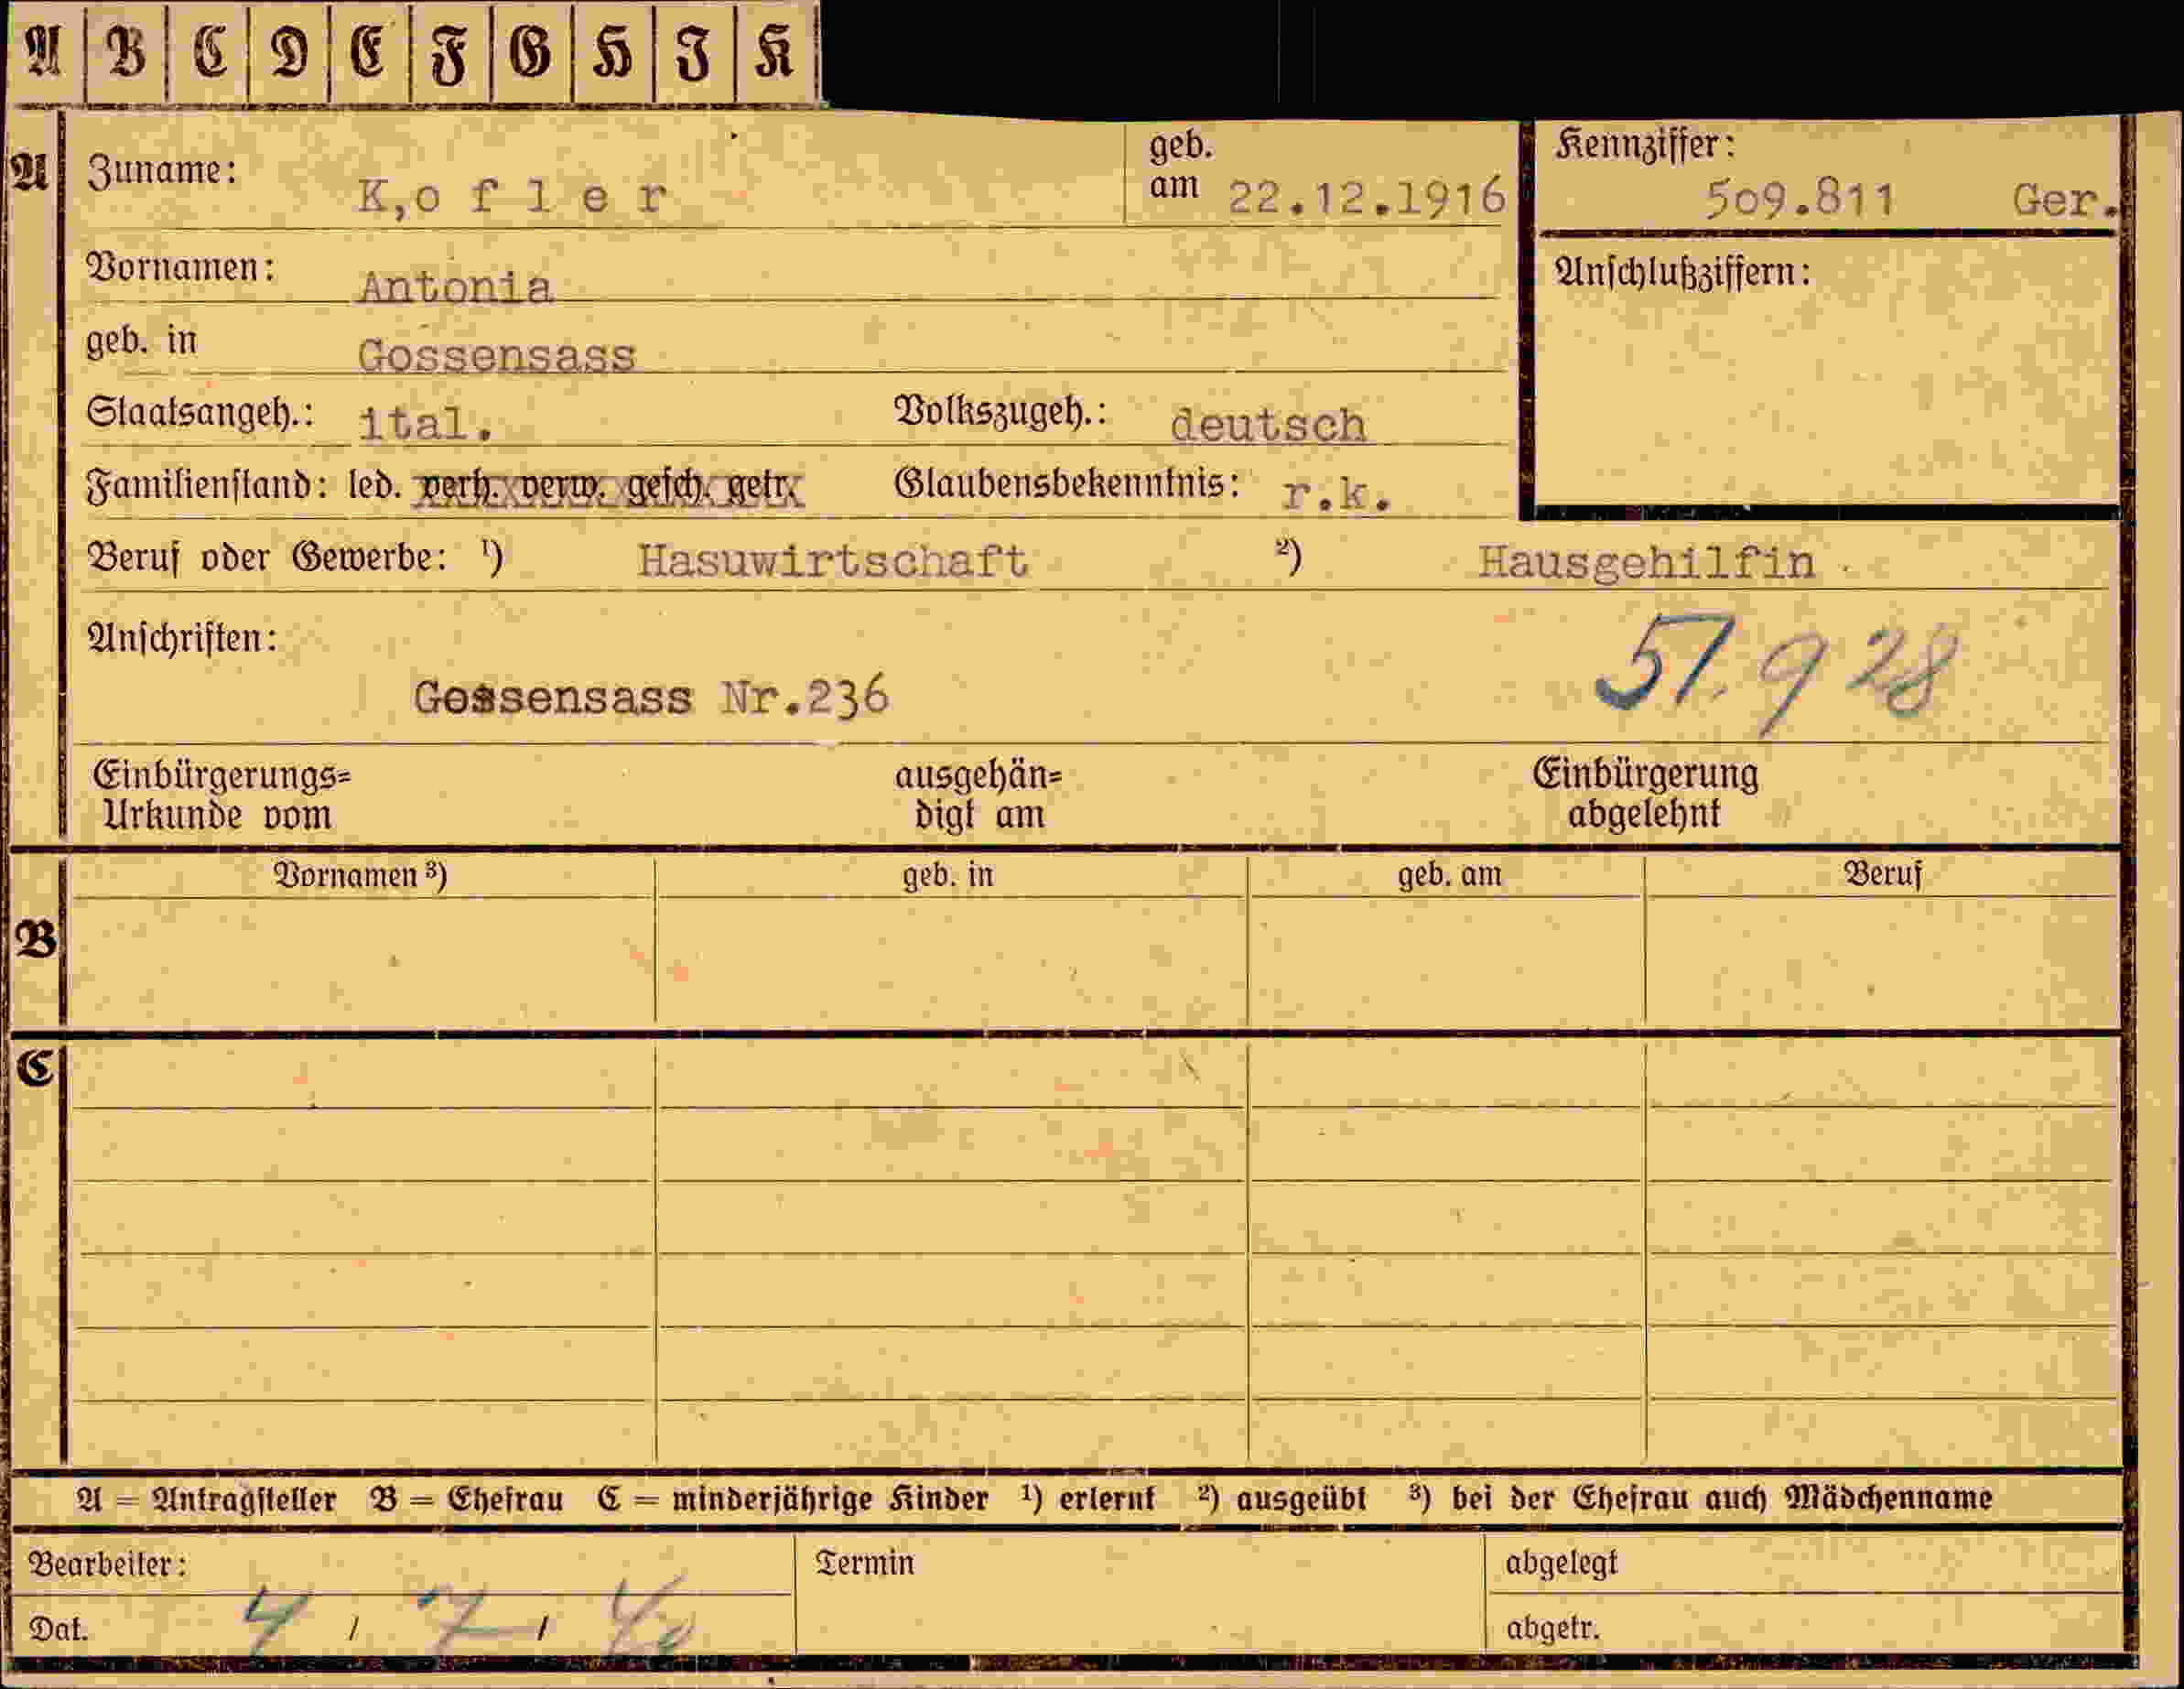 A B C D E F G H I K
A Zuname: K,o f l e r geb. am 22.12.1916 Kennziffer: 509.811 Ger.
Vornamen: Antonia Anschlußziffern:
geb. in Gossensass
Staatsangeh.: ital. Volkszugeh.: deutsch
Familienstand: led. verh. verw. gesch. getr. Glaubensbekenntnis: r.k.
Beruf oder Gewerbe: ¹) Hasuwirtschaft ²) Hausgehilfin
Anschriften:
51.928
Gossensass Nr.236
Einbürgerungs= ausgehän= Einbürgerung
Urkunde vom digt am abgelehnt
Vornamen ³) geb. in geb. am Beruf
B
C
A = Antragsteller B = Ehefrau C = minderjährige Kinder ¹) erlernt ²) ausgeübt ³) bei der Ehefrau auch Mädchenname
Bearbeiter: Termin abgelegt
Dat. 4 / 7 / 40 abgetr.